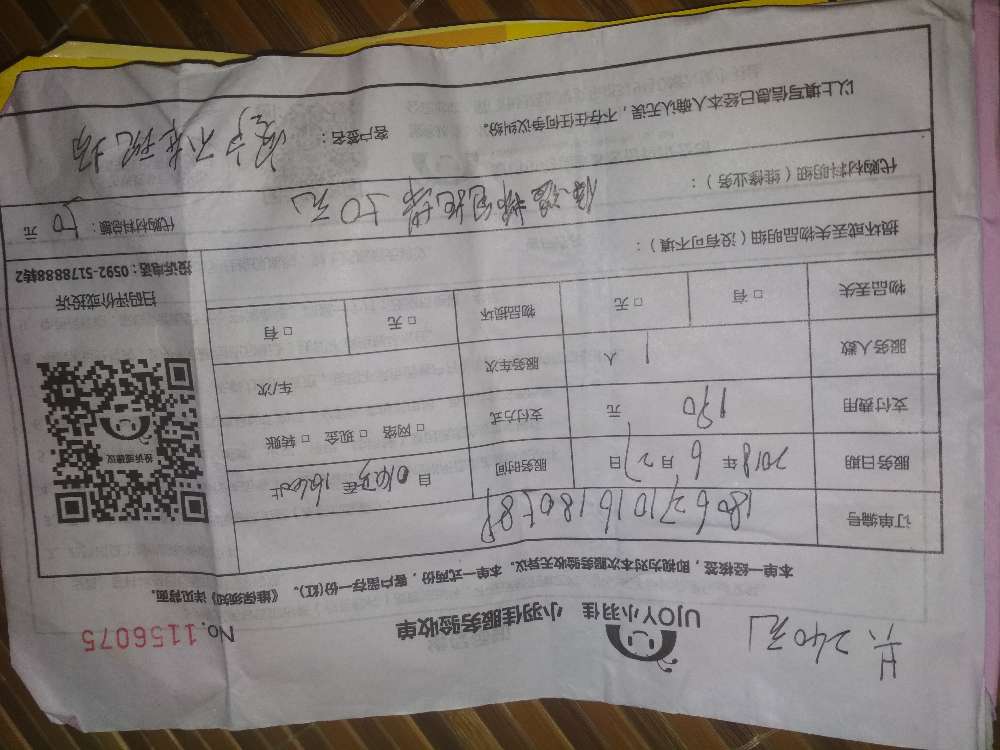 共240元
UJOY小羽佳 小羽佳服务验收单 No.1156075
本单一经核签，即视为对本次服务验收无异议。本单一式两份，客户留存一份(红)。《维保须知》详见背面。
订单编号
服务日期 2018 年 6 月 27 日 服务时间 自 至
支付费用 190 元 支付方式 □ 网络 □ 现金 □ 转账
服务人数 1 人 服务车次 车/次
物品丢失 □ 有 □ 无 物品损坏 □ 无 □ 有
投诉或建议
扫码评价或投诉
投诉电话：0592-5178888转2
损坏或丢失物品明细（没有可不填）：
代购材料明细（维修业务）： 50元 代购材料总额： 50 元
以上填写信息已经本人确认无误，不存在任何争议纠纷。 客户签名： 客户不在现场